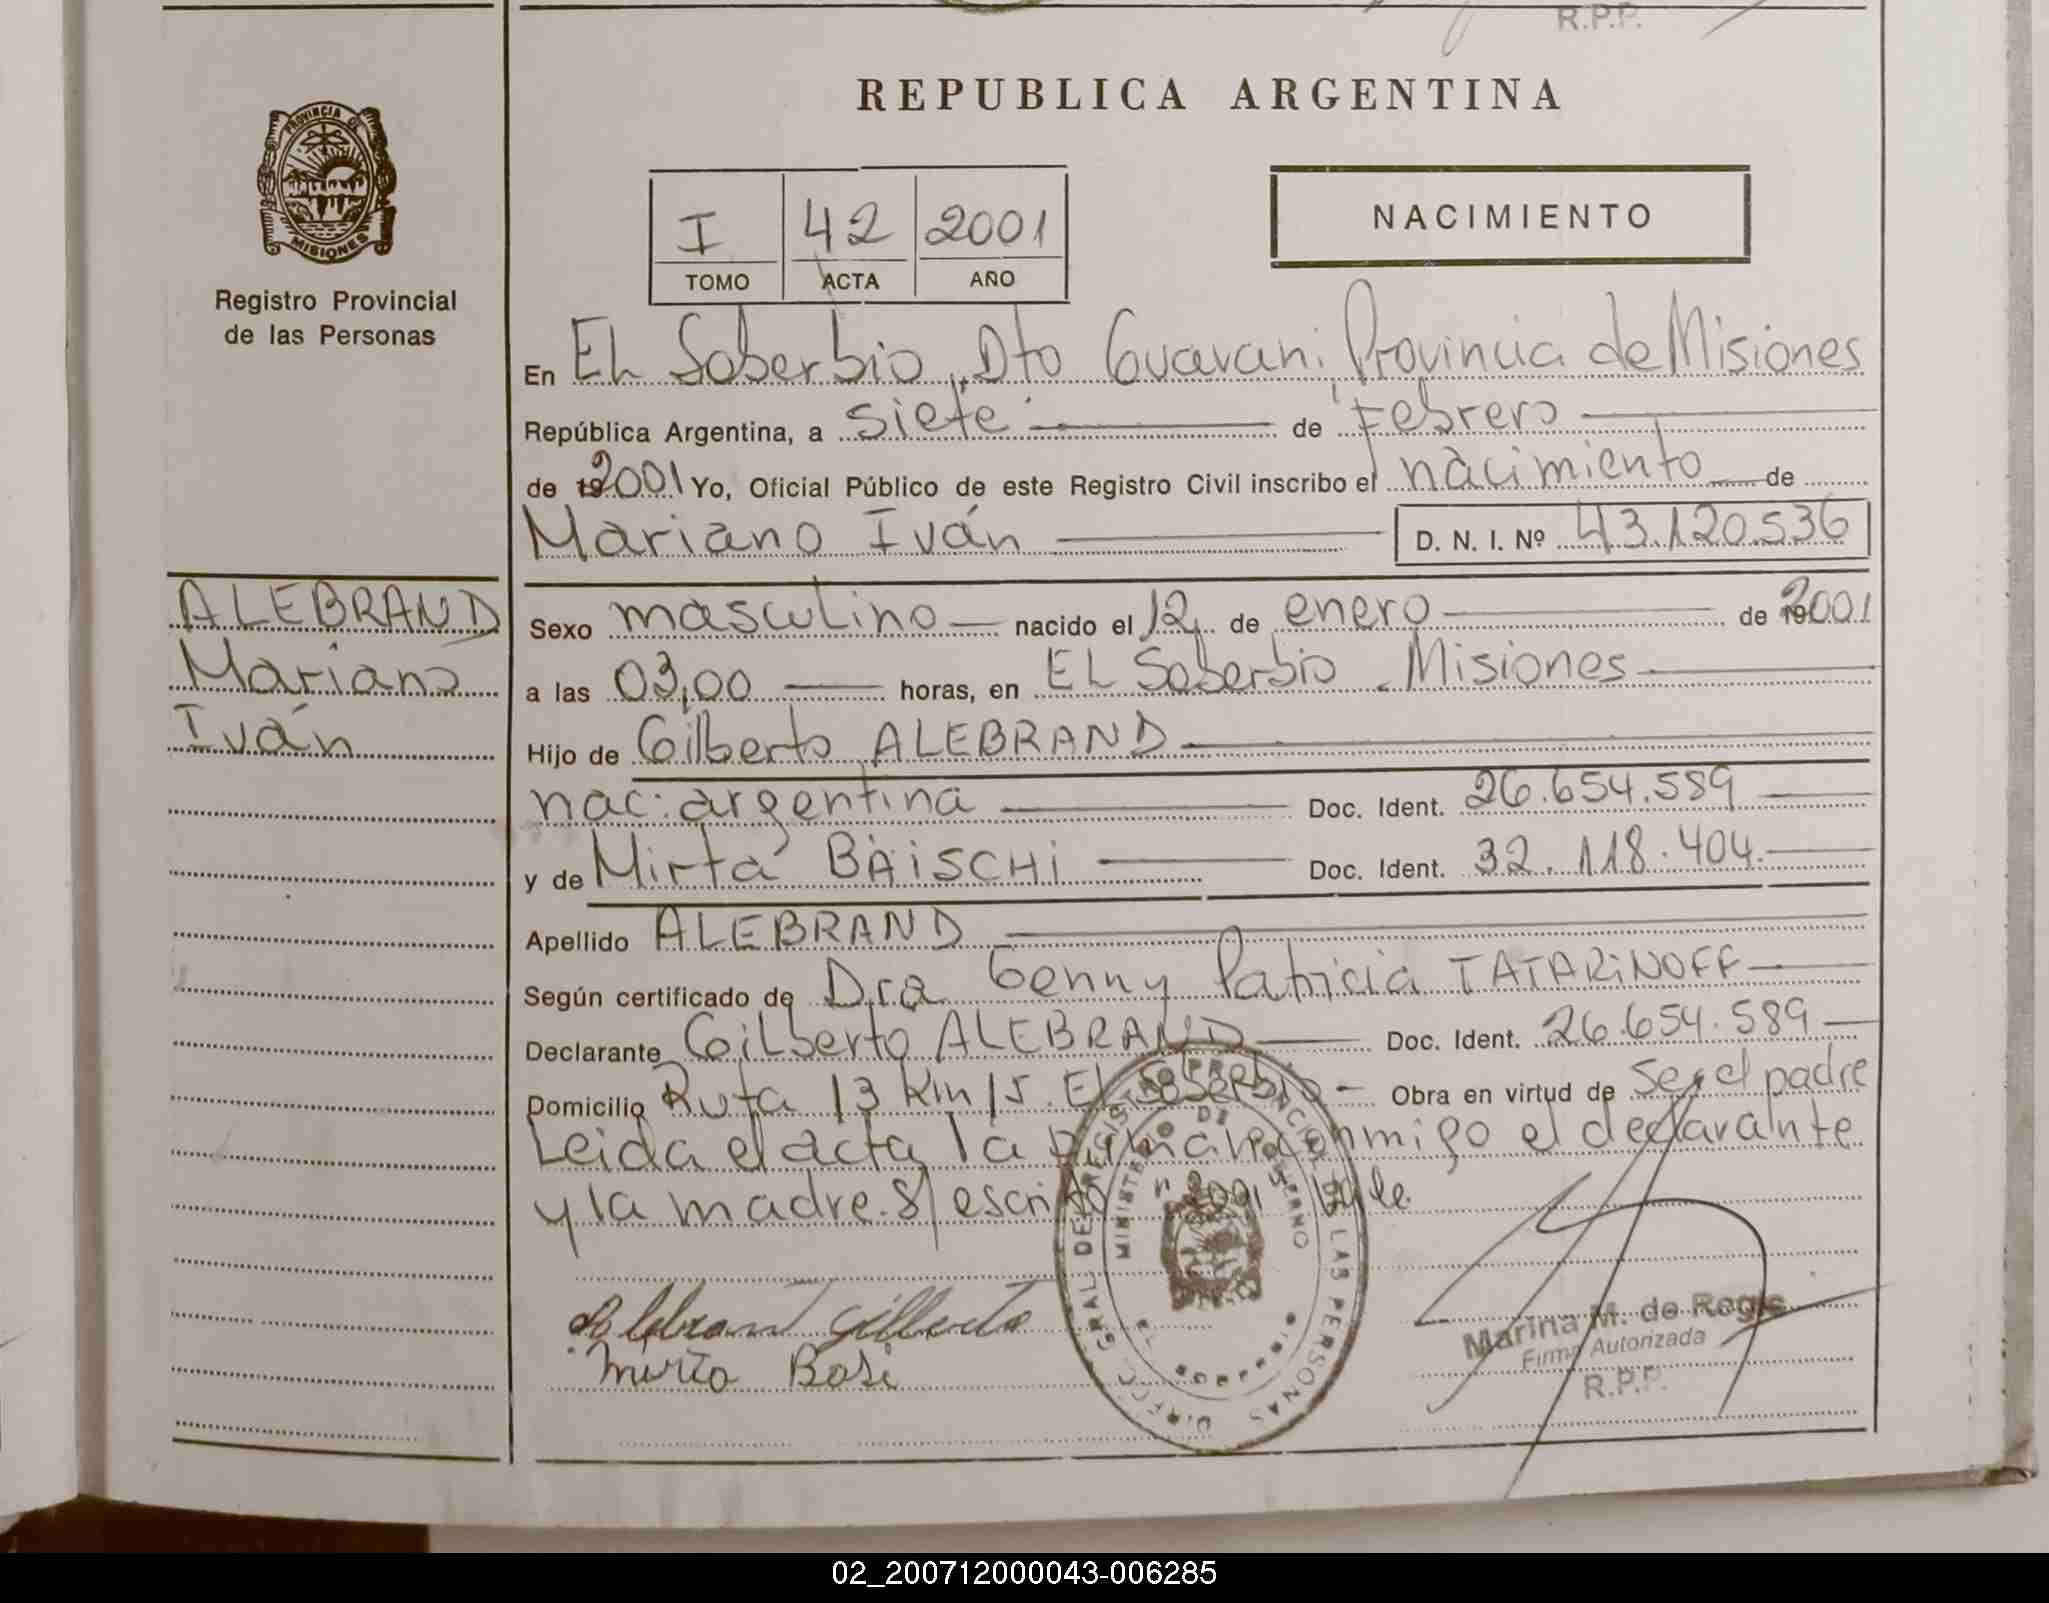 R.P.P.
REPUBLICA ARGENTINA
PROVINCIA DE
MISIONES
Registro Provincial
de las Personas
I 42 2001
TOMO ACTA AÑO
NACIMIENTO
En EL Soberbio, Dto Guarani, Provincia de Misiones
República Argentina, a siete de Febrero
de 2001 Yo, Oficial Público de este Registro Civil inscribo el nacimiento de
Mariano Iván D. N. I. Nº 43.120.536
ALEBRAND
Mariano
Iván
Sexo masculino nacido el 12 de enero de 2001
a las 03,00 horas, en EL Soberbio - Misiones
Hijo de Gilberto ALEBRAND
nac: argentina Doc. Ident. 26.654.589
y de Mirta BAiSCHi Doc. Ident. 32.118.404.
Apellido ALEBRAND
Según certificado de Dra Genny Patricia TATARiNOFF
Declarante GiLberto ALEBRAND Doc. Ident. 26.654.589
Domicilio Ruta 13 Km 15. EL Soberbio - Obra en virtud de ser el padre
Leida el acta la firman conmigo el declarante
y la madre. S/ escrito "2001" Vale.
Alebrant Gilberto
Mirta Basi
DIRECC. GRAL DE REGISTRO PROVINCIAL DE LAS PERSONAS
MINISTERIO DE GOBIERNO
Marina M. de Regis
Firma Autorizada
R.P.P.
02_200712000043-006285